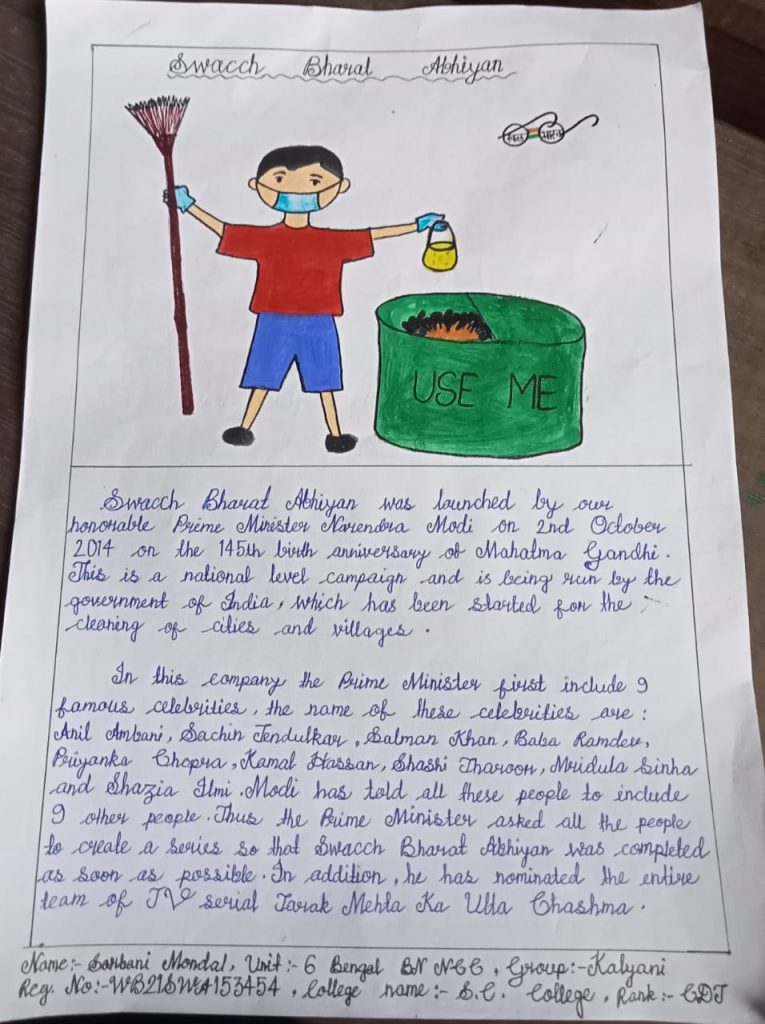 Swacch Bharat Abhiyan
स्वच्छ भारत
USE ME
Swacch Bharat Abhiyan was launched by our
honorable Prime Minister Narendra Modi on 2nd October
2014 on the 145th birth anniversary of Mahatma Gandhi.
This is a national level campaign and is being run by the
government of India, which has been started for the
cleaning of cities and villages.
In this company the Prime Minister first include 9
famous celebrities, the name of these celebrities are:
Anil Ambani, Sachin Tendulkar, Salman Khan, Baba Ramdev,
Priyanka Chopra, Kamal Hassan, Shashi Tharoor, Mridula Sinha
and Shazia Ilmi. Modi has told all these people to include
9 other people. Thus the Prime Minister asked all the people
to create a series so that Swacch Bharat Abhiyan was completed
as soon as possible. In addition, he has nominated the entire
team of TV serial Tarak Mehta Ka Ulta Chashma.
Name:- Sarbani Mondal, Unit:- 6 Bengal BN NCC, Group:- Kalyani
Reg. No:- WB21SWA153454, College name:- S.C. College, Rank:- CDT